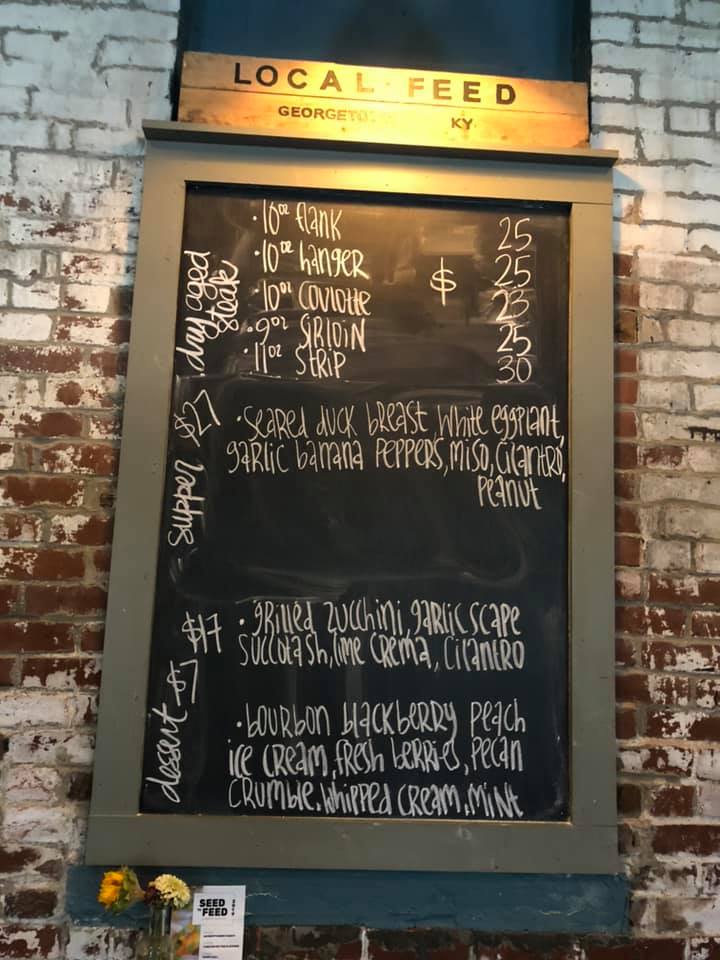 LOCAL FEED
GEORGETO KY
dry aged steak
· 16oz flank 25
· 10oz hanger $ 25
· 10oz coulotte 23
· 9oz sirloin 25
· 11oz strip 30
supper $27
· seared duck breast, white eggplant,
garlic banana peppers, miso, cilantro,
peanut
$17
· grilled zucchini, garlic scape
succotash, lime crema, cilantro
dessert $7
· bourbon blackberry peach
ice cream, fresh berries, pecan
crumble, whipped cream, mint
SEED
TO FEED